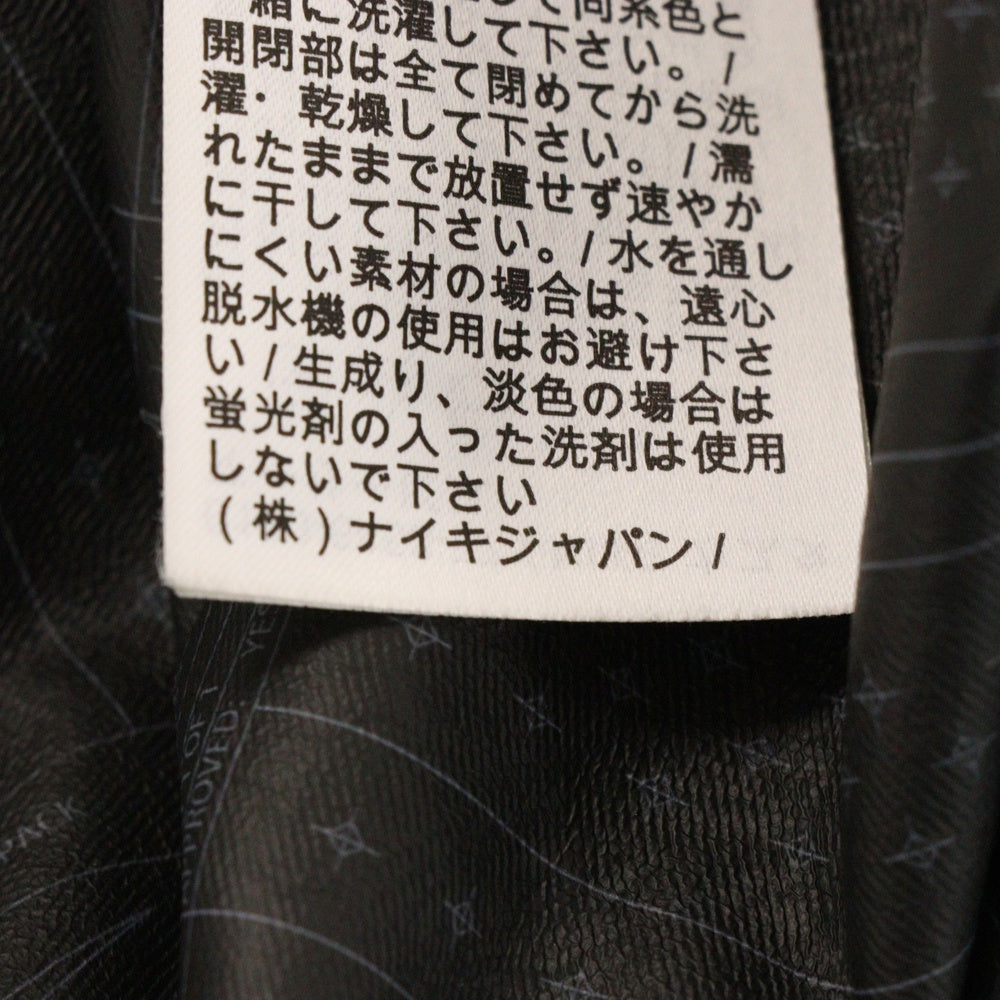 緒に洗濯して下さい。
同系色と
開閉部は全て閉めてから洗
濯・乾燥して下さい。/濡
れたままで放置せず速やか
に干して下さい。/水を通し
にくい素材の場合は、遠心
脱水機の使用はお避け下さ
い/生成り、淡色の場合は
蛍光剤の入った洗剤は使用
しないで下さい
(株)ナイキジャパン/
YES
OF
ROVED.
PACK